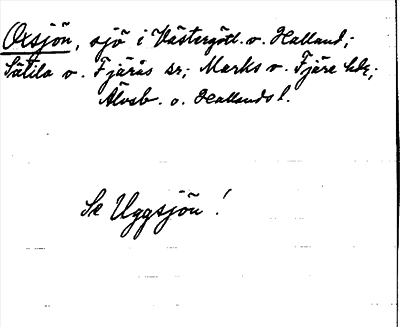 Oxsjön, sjö i Västergötl. o. Halland;
Sätila o. Fjärås sr; Marks o. Fjäre hdr;
Älvsb. o. Hallands l.
Se Uggsjön!